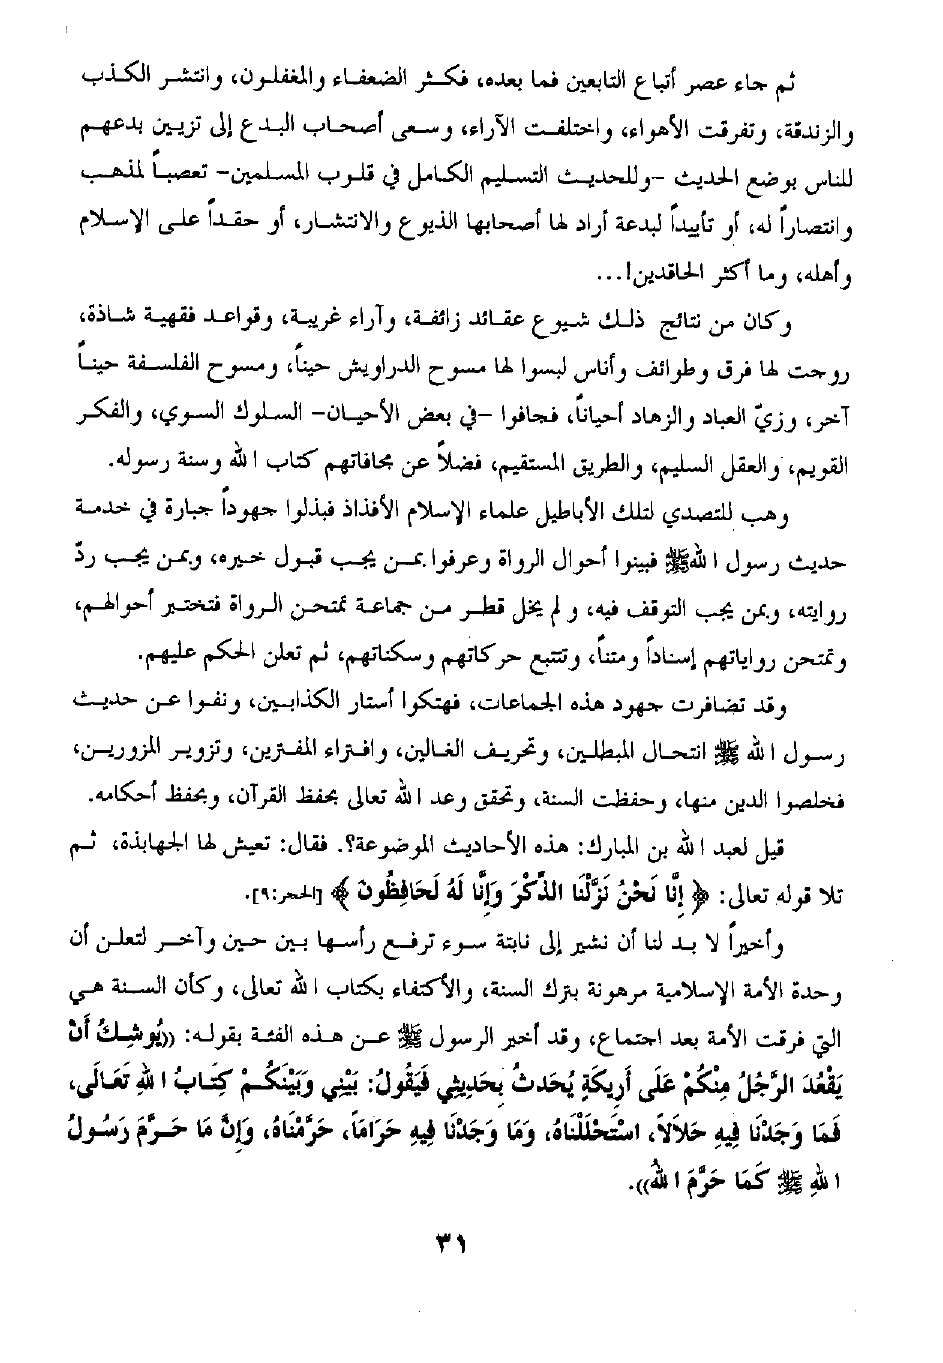 ثم جاء عصر أتباع التابعين فما بعده، فكثر الضعفاء والمغفلون، وانتشر الكذب
والزندقة، وتفرقت الأهواء، واختلفت الآراء، وسعى أصحاب البدع إلى تزيين بدعهم
للناس بوضع الحديث -وللحديث التسليم الكامل في قلوب المسلمين- تعصباً لمذهب
وانتصاراً له، أو تأييداً لبدعة أراد لها أصحابها الذيوع والانتشار، أو حقداً على الإسلام
وأهله، وما أكثر الحاقدين!...
وكان من نتائج ذلك شيوع عقائد زائفة، وآراء غريبة، وقواعد فقهية شاذة،
روجت لها فرق وطوائف وأناس لبسوا لها مسوح الدراويش حيناً، ومسوح الفلسفة حيناً
آخر، وزيّ العباد والزهاد أحياناً، فجافوا -في بعض الأحيان- السلوك السوي، والفكر
القويم، والعقل السليم، والطريق المستقيم، فضلاً عن مجافاتهم كتاب الله وسنة رسوله.
وهب للتصدي لتلك الأباطيل علماء الإسلام الأفذاذ فبذلوا جهوداً جبارة في خدمة
حديث رسول الله ﷺ فبينوا أحوال الرواة وعرفوا بمن يجب قبول خبره، وبمن يجب ردّ
روايته، وبمن يجب التوقف فيه، ولم يخل قطر من جماعة تمتحن الرواة فتختبر أحوالهم،
وتمتحن رواياتهم إسناداً ومتناً، وتتبع حركاتهم وسكناتهم، ثم تعلن الحكم عليهم.
وقد تضافرت جهود هذه الجماعات، فهتكوا أستار الكذابين، ونفوا عن حديث
رسول الله ﷺ انتحال المبطلين، وتحريف الغالين، وافتراء المفترين، وتزوير المزورين،
فخلصوا الدين منها، وحفظت السنة، وتحقق وعد الله تعالى بحفظ القرآن، وبحفظ أحكامه.
قيل لعبد الله بن المبارك: هذه الأحاديث الموضوعة؟. فقال: تعيش لها الجهابذة، ثم
تلا قوله تعالى: ﴿ إِنَّا نَحْنُ نَزَّلْنَا الذِّكْرَ وَإِنَّا لَهُ لَحَافِظُونَ ﴾ [الحجر:٩].
وأخيراً لا بد لنا أن نشير إلى نابتة سوء ترفع رأسها بين حين وآخر لتعلن أن
وحدة الأمة الإسلامية مرهونة بترك السنة، والأكتفاء بكتاب الله تعالى، وكأن السنة هي
التي فرقت الأمة بعد اجتماع، وقد أخبر الرسول ﷺ عن هذه الفئة بقوله: ((يُوشِكُ أَنْ
يَقْعُدَ الرَّجُلُ مِنْكُمْ عَلَى أَرِيكَةٍ يُحَدثُ بِحَدِيثِي فَيَقُولُ: بَيْنِي وَبَيْنَكُمْ كِتَابُ اللهِ تَعَالَى،
فَمَا وَجَدْنَا فِيهِ حَلاَلاً، اسْتَحْلَلْنَاهُ، وَمَا وَجَدْنَا فِيهِ حَرَاماً، حَرَّمْنَاهُ، وَإِنَّ مَا حَرَّمَ رَسُولُ
اللهِ ﷺ كَمَا حَرَّمَ اللهُ)).
٣١